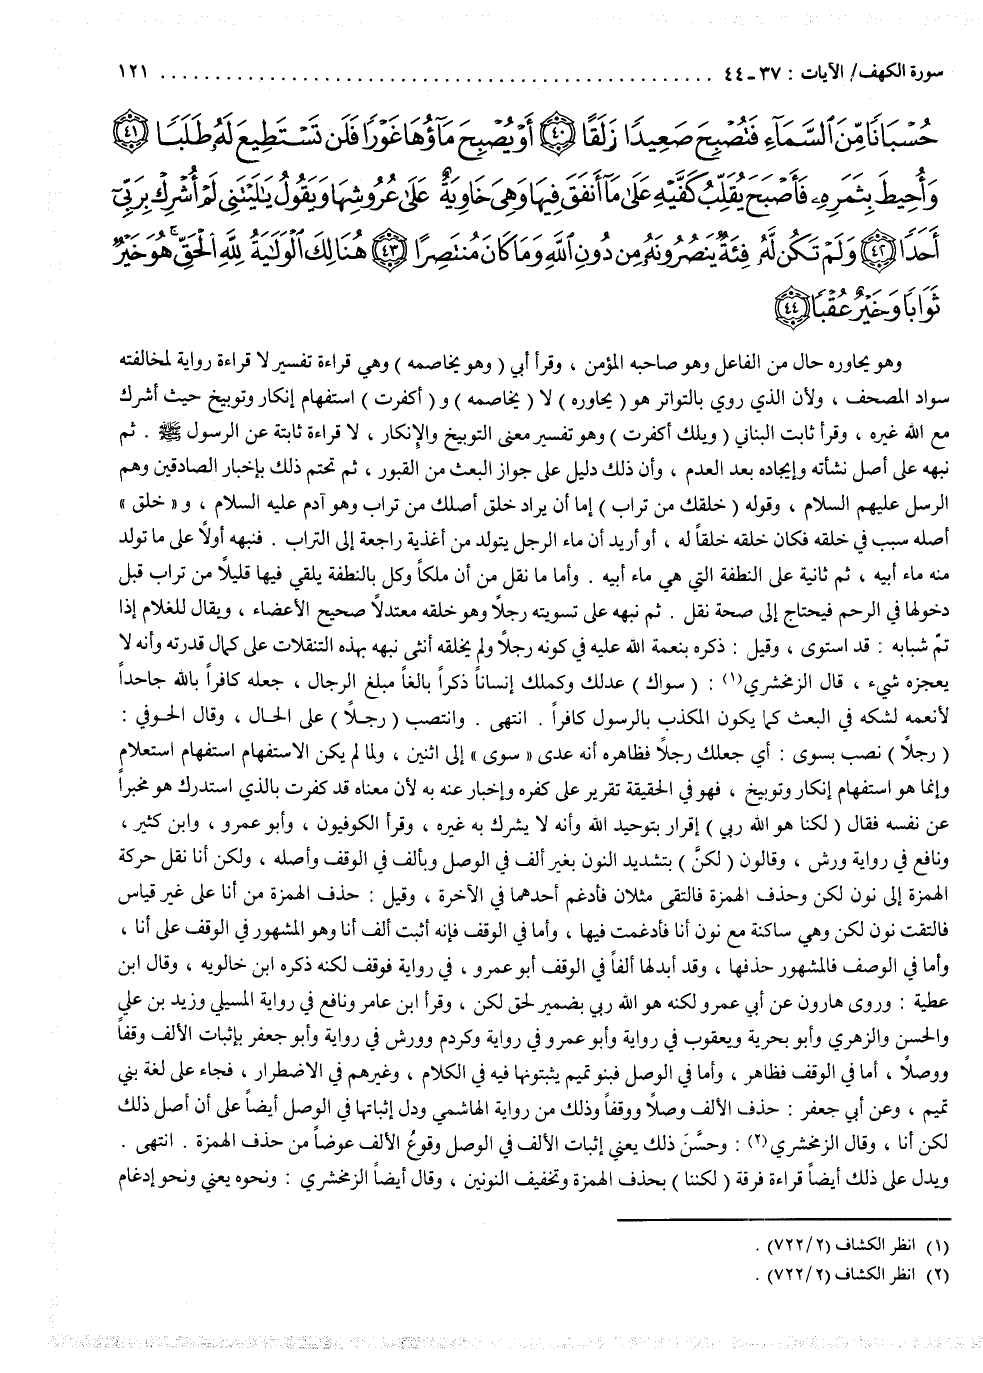 سورة الكهف/ الآيات : ٣٧ـ٤٤ ............................................................ ١٢١
حُسْبَانًا مِّنَ ٱلسَّمَآءِ فَتُصْبِحَ صَعِيدًا زَلَقًا ٤٠ أَوْ يُصْبِحَ مَآؤُهَا غَوْرًا فَلَن تَسْتَطِيعَ لَهُۥ طَلَبًا ٤١
وَأُحِيطَ بِثَمَرِهِۦ فَأَصْبَحَ يُقَلِّبُ كَفَّيْهِ عَلَىٰ مَآ أَنفَقَ فِيهَا وَهِىَ خَاوِيَةٌ عَلَىٰ عُرُوشِهَا وَيَقُولُ يَٰلَيْتَنِى لَمْ أُشْرِكْ بِرَبِّىٓ
أَحَدًا ٤٢ وَلَمْ تَكُن لَّهُۥ فِئَةٌ يَنصُرُونَهُۥ مِن دُونِ ٱللَّهِ وَمَا كَانَ مُنتَصِرًا ٤٣ هُنَالِكَ ٱلْوَلَٰيَةُ لِلَّهِ ٱلْحَقِّ ۚ هُوَ خَيْرٌ
ثَوَابًا وَخَيْرٌ عُقْبًا ٤٤
وهو يحاوره حال من الفاعل وهو صاحبه المؤمن ، وقرأ أبي ( وهو يخاصمه ) وهي قراءة تفسير لا قراءة رواية لمخالفته
سواد المصحف ، ولأن الذي روي بالتواتر هو ( يحاوره ) لا ( يخاصمه ) و ( أكفرت ) استفهام إنكار وتوبيخ حيث أشرك
مع الله غيره ، وقرأ ثابت البناني ( ويلك أكفرت ) وهو تفسير معنى التوبيخ والإنكار ، لا قراءة ثابتة عن الرسول ﷺ . ثم
نبهه على أصل نشأته وإيجاده بعد العدم ، وأن ذلك دليل على جواز البعث من القبور ، ثم تحتم ذلك بإخبار الصادقين وهم
الرسل عليهم السلام ، وقوله ( خلقك من تراب ) إما أن يراد خلق أصلك من تراب وهو آدم عليه السلام ، و « خلق »
أصله سبب في خلقه فكان خلقه خلقاً له ، أو أريد أن ماء الرجل يتولد من أغذية راجعة إلى التراب . فنبهه أولاً على ما تولد
منه ماء أبيه ، ثم ثانية على النطفة التي هي ماء أبيه . وأما ما نقل من أن ملكاً وكل بالنطفة يلقي فيها قليلاً من تراب قبل
دخولها في الرحم فيحتاج إلى صحة نقل . ثم نبهه على تسويته رجلاً وهو خلقه معتدلاً صحيح الأعضاء ، ويقال للغلام إذا
تمّ شبابه : قد استوى ، وقيل : ذكره بنعمة الله عليه في كونه رجلاً ولم يخلقه أنثى نبهه بهذه التنقلات على كمال قدرته وأنه لا
يعجزه شيء ، قال الزمخشري(١) : ( سواك ) عدلك وكملك إنساناً ذكراً بالغاً مبلغ الرجال ، جعله كافراً بالله جاحداً
لأنعمه لشكه في البعث كما يكون المكذب بالرسول كافراً . انتهى . وانتصب ( رجـلاً ) على الحـال ، وقال الحـوفي :
( رجلاً ) نصب بسوى : أي جعلك رجلاً فظاهره أنه عدى « سوى » إلى اثنين ، ولما لم يكن الاستفهام استفهام استعلام
وإنما هو استفهام إنكار وتوبيخ ، فهو في الحقيقة تقرير على كفره وإخبار عنه به لأن معناه قد كفرت بالذي استدرك هو مخبراً
عن نفسه فقال ( لكنا هو الله ربي ) إقرار بتوحيد الله وأنه لا يشرك به غيره ، وقرأ الكوفيون ، وأبو عمرو ، وابن كثير ،
ونافع في رواية ورش ، وقالون ( لكنَّ ) بتشديد النون بغير ألف في الوصل وبألف في الوقف وأصله ، ولكن أنا نقل حركة
الهمزة إلى نون لكن وحذف الهمزة فالتقى مثلان فأدغم أحدهما في الآخرة ، وقيل : حذف الهمزة من أنا على غير قياس
فالتقت نون لكن وهي ساكنة مع نون أنا فأدغمت فيها ، وأما في الوقف فإنه أثبت ألف أنا وهو المشهور في الوقف على أنا ،
وأما في الوصف فالمشهور حذفها ، وقد أبدلها ألفاً في الوقف أبو عمرو ، في رواية فوقف لكنه ذكره ابن خالويه ، وقال ابن
عطية : وروى هارون عن أبي عمرو لكنه هو الله ربي بضمير لحق لكن ، وقرأ ابن عامر ونافع في رواية المسيلي وزيد بن علي
والحسن والزهري وأبو بحرية ويعقوب في رواية وأبو عمرو في رواية وكردم وورش في رواية وأبو جعفر بإثبات الألف وقفاً
ووصلاً ، أما في الوقف فظاهر ، وأما في الوصل فبنو تميم يثبتونها فيه في الكلام ، وغيرهم في الاضطرار ، فجاء على لغة بني
تميم ، وعن أبي جعفر : حذف الألف وصلاً ووقفاً وذلك من رواية الهاشمي ودل إثباتها في الوصل أيضاً على أن أصل ذلك
لكن أنا ، وقال الزمخشري(٢) : وحسَّنَ ذلك يعني إثبات الألف في الوصل وقوعُ الألف عوضاً من حذف الهمزة . انتهى .
ويدل على ذلك أيضاً قراءة فرقة ( لكننا ) بحذف الهمزة وتخفيف النونين ، وقال أيضاً الزمخشري : ونحوه يعني ونحو إدغام
(١) انظر الكشاف (٧٢٢/٢) .
(٢) انظر الكشاف (٧٢٢/٢) .